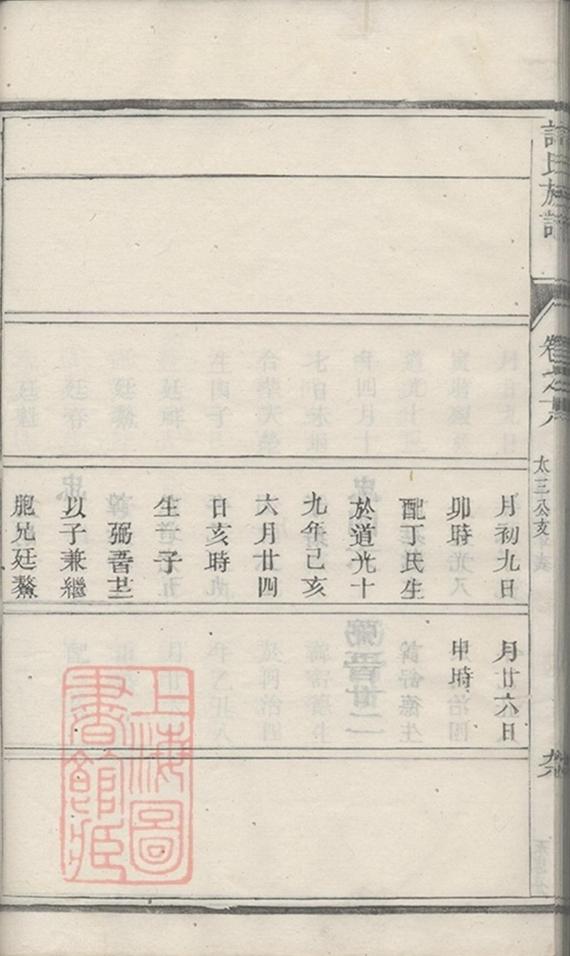 許氏族譜
卷之六
太三公支
月初九日
卯時
配丁氏生
於道光十
九年己亥
六月廿四
日亥時
生一子
弼晉廿三
以子兼繼
胞兄廷鰲
月廿六日
申時
上海圖書館藏